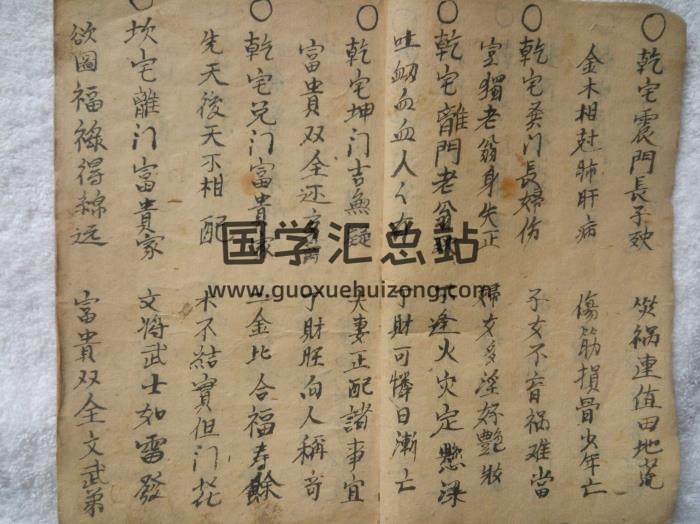 乾宅震門長子殀 災祸連值田地荒
金木相尅肺肝病 傷筋損骨少年亡
乾宅巽门長婦伤 子女不育祸难當
空獨老翁身失正 婦女多淫好艷妝
乾宅離門老翁 不逢火灾定懸梁
吐衂血人人 丁財可憐日漸亡
乾宅坤门吉無疑 夫妻正配諸事宜
富貴双全还 丁財旺向人稱奇
乾宅兑门富貴家 二金比合福寿餘
先天後天不相配 木不結實但门花
坎宅離门富貴家 文將武士如雷發
欲圖福祿得綿远 富貴双全文武弟
国学汇总站
www.guoxuehuizong.com